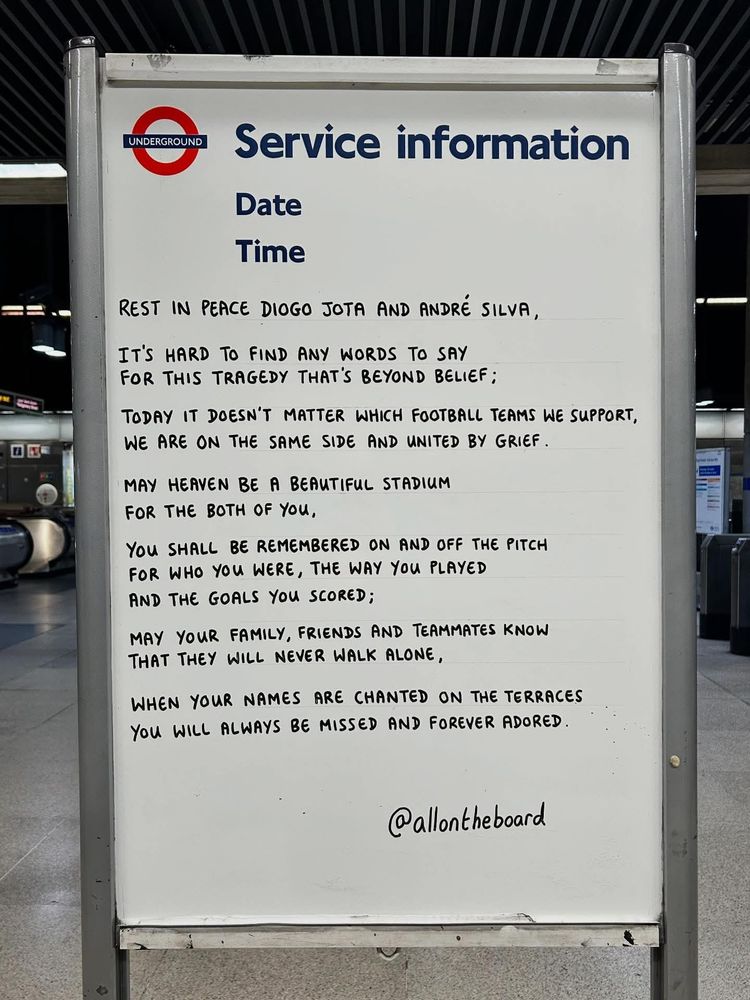 UNDERGROUND
Service information
Date
Time
REST IN PEACE DIOGO JOTA AND ANDRÉ SILVA,
IT'S HARD TO FIND ANY WORDS TO SAY
FOR THIS TRAGEDY THAT'S BEYOND BELIEF;
TODAY IT DOESN'T MATTER WHICH FOOTBALL TEAMS WE SUPPORT,
WE ARE ON THE SAME SIDE AND UNITED BY GRIEF.
MAY HEAVEN BE A BEAUTIFUL STADIUM
FOR THE BOTH OF YOU,
YOU SHALL BE REMEMBERED ON AND OFF THE PITCH
FOR WHO YOU WERE, THE WAY YOU PLAYED
AND THE GOALS YOU SCORED;
MAY YOUR FAMILY, FRIENDS AND TEAMMATES KNOW
THAT THEY WILL NEVER WALK ALONE,
WHEN YOUR NAMES ARE CHANTED ON THE TERRACES
YOU WILL ALWAYS BE MISSED AND FOREVER ADORED.
@allontheboard